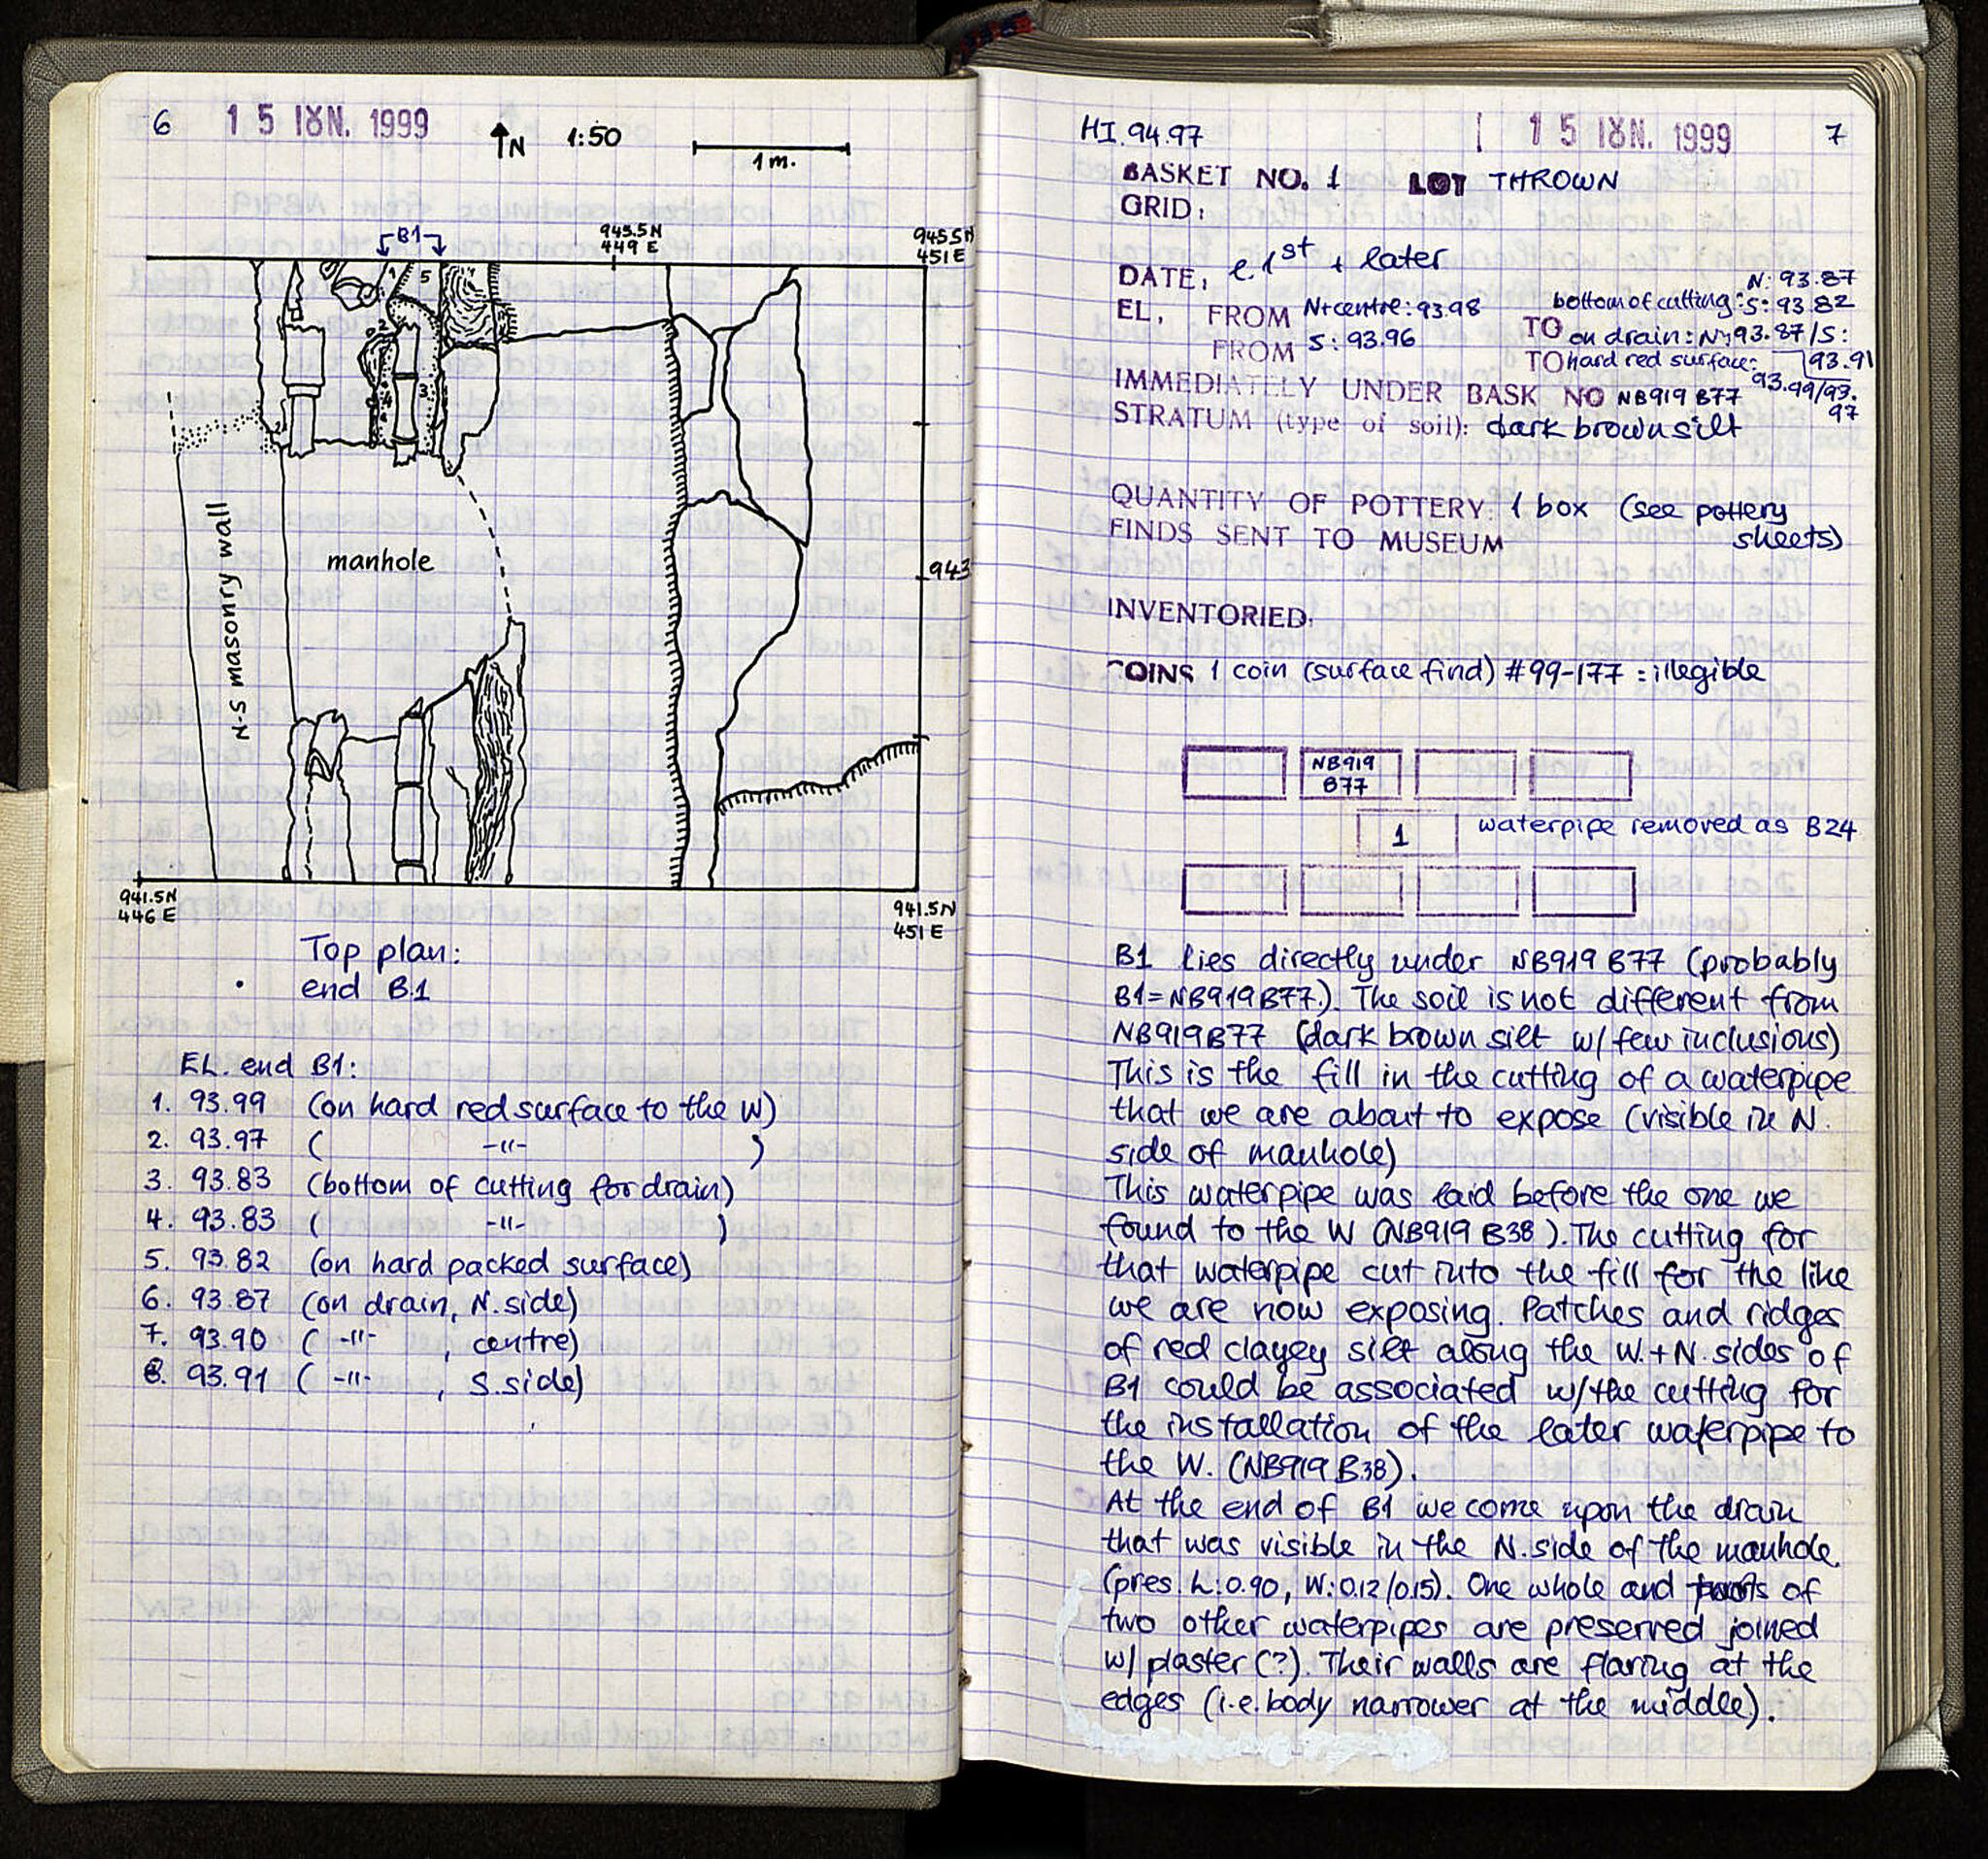 6
15 ΙΟΥΝ. 1999
N
1:50
1m.
B1
945.5N
449 E
945.5N
451 E
1
5
2
3
4
N-S masonry wall
manhole
943
941.5N
446 E
941.5N
451 E
Top plan:
end B1
EL. end B1:
1. 93.99 (on hard red surface to the W)
2. 93.97 ( -11- )
3. 93.83 (bottom of cutting for drain)
4. 93.83 ( -11- )
5. 93.82 (on hard packed surface)
6. 93.87 (on drain, N. side)
7. 93.90 ( -11- , centre)
8. 93.91 ( -11- , S. side)
HI. 94.97
15 ΙΟΥΝ. 1999
7
BASKET NO. 1 LOT THROWN
GRID:
DATE: l. 1st + later
EL. FROM N+centre: 93.98
FROM S: 93.96
bottom of cutting: N: 93.87
S: 93.82
TO on drain: N: 93.87/S: 93.91
TO hard red surface: 93.99/93.97
IMMEDIATELY UNDER BASK NO NB919 B77
STRATUM (type of soil): dark brown silt
QUANTITY OF POTTERY: 1 box (see pottery
sheets)
FINDS SENT TO MUSEUM
INVENTORIED:
COINS 1 coin (surface find) #99-177 : illegible
NB919
B77
1
waterpipe removed as B24
B1 lies directly under NB919 B77 (probably
B1=NB919B77.). The soil is not different from
NB919B77 (dark brown silt w/ few inclusions)
This is the fill in the cutting of a waterpipe
that we are about to expose (visible in N.
side of manhole)
This waterpipe was laid before the one we
found to the W (NB919 B38). The cutting for
that waterpipe cut into the fill for the like
we are now exposing. Patches and ridges
of red clayey silt along the W.+N. sides of
B1 could be associated w/the cutting for
the installation of the later waterpipe to
the W. (NB919 B38).
At the end of B1 we come upon the drain
that was visible in the N. side of the manhole.
(pres. L:0.90, W:0.12/0.15). One whole and parts of
two other waterpipes are preserved joined
w/ plaster (?). Their walls are flaring at the
edges (i.e. body narrower at the middle).